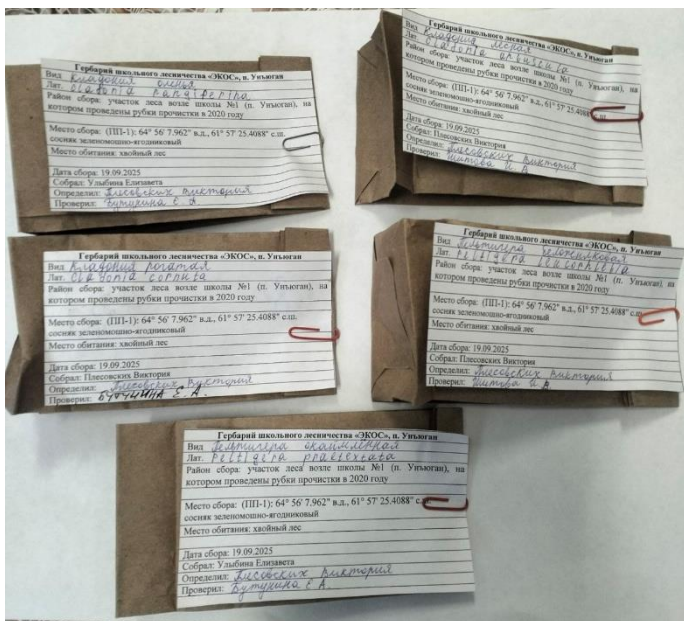 Гербарий школьного лесничества «ЭКОС», п. Унъюган
Вид Кладония оленья
Лат. Cladonia rangiferina
Район сбора: участок леса возле школы №1 (п. Унъюган), на
котором проведены рубки прочистки в 2020 году
Место сбора: (ПП-1): 64° 56' 7.962" в.д., 61° 57' 25.4088" с.ш.
сосняк зеленомошно-ягодниковый
Место обитания: хвойный лес
Дата сбора: 19.09.2025
Собрал: Улыбина Елизавета
Определил: Плесовских Виктория
Проверил: Бутунина Е.А.
Гербарий школьного лесничества «ЭКОС», п. Унъюган
Вид Кладония лесная
Лат. Cladonia arbuscula
Район сбора: участок леса возле школы №1 (п. Унъюган), на
котором проведены рубки прочистки в 2020 году
Место сбора: (ПП-1): 64° 56' 7.962" в.д., 61° 57' 25.4088" с.ш.
сосняк зеленомошно-ягодниковый
Место обитания: хвойный лес
Дата сбора: 19.09.2025
Собрал: Плесовских Виктория
Определил: Плесовских Виктория
Проверил: Шитова И.В.
Гербарий школьного лесничества «ЭКОС», п. Унъюган
Вид Кладония рогатая
Лат. Cladonia cornuta
Район сбора: участок леса возле школы №1 (п. Унъюган), на
котором проведены рубки прочистки в 2020 году
Место сбора: (ПП-1): 64° 56' 7.962" в.д., 61° 57' 25.4088" с.ш.
сосняк зеленомошно-ягодниковый
Место обитания: хвойный лес
Дата сбора: 19.09.2025
Собрал: Плесовских Виктория
Определил: Плесовских Виктория
Проверил: Бутунина Е.А.
Гербарий школьного лесничества «ЭКОС», п. Унъюган
Вид Пельтигера
Лат. Peltigera
Район сбора: участок леса возле школы №1 (п. Унъюган), на
котором проведены рубки прочистки в 2020 году
Место сбора: (ПП-1): 64° 56' 7.962" в.д., 61° 57' 25.4088" с.ш.
сосняк зеленомошно-ягодниковый
Место обитания: хвойный лес
Дата сбора: 19.09.2025
Собрал: Плесовских Виктория
Определил: Плесовских Виктория
Проверил: Шитова И.В.
Гербарий школьного лесничества «ЭКОС», п. Унъюган
Вид Пельтигера окаймленная
Лат. Peltigera praetextata
Район сбора: участок леса возле школы №1 (п. Унъюган), на
котором проведены рубки прочистки в 2020 году
Место сбора: (ПП-1): 64° 56' 7.962" в.д., 61° 57' 25.4088" с.ш.
сосняк зеленомошно-ягодниковый
Место обитания: хвойный лес
Дата сбора: 19.09.2025
Собрал: Улыбина Елизавета
Определил: Плесовских Виктория
Проверил: Бутунина Е.А.